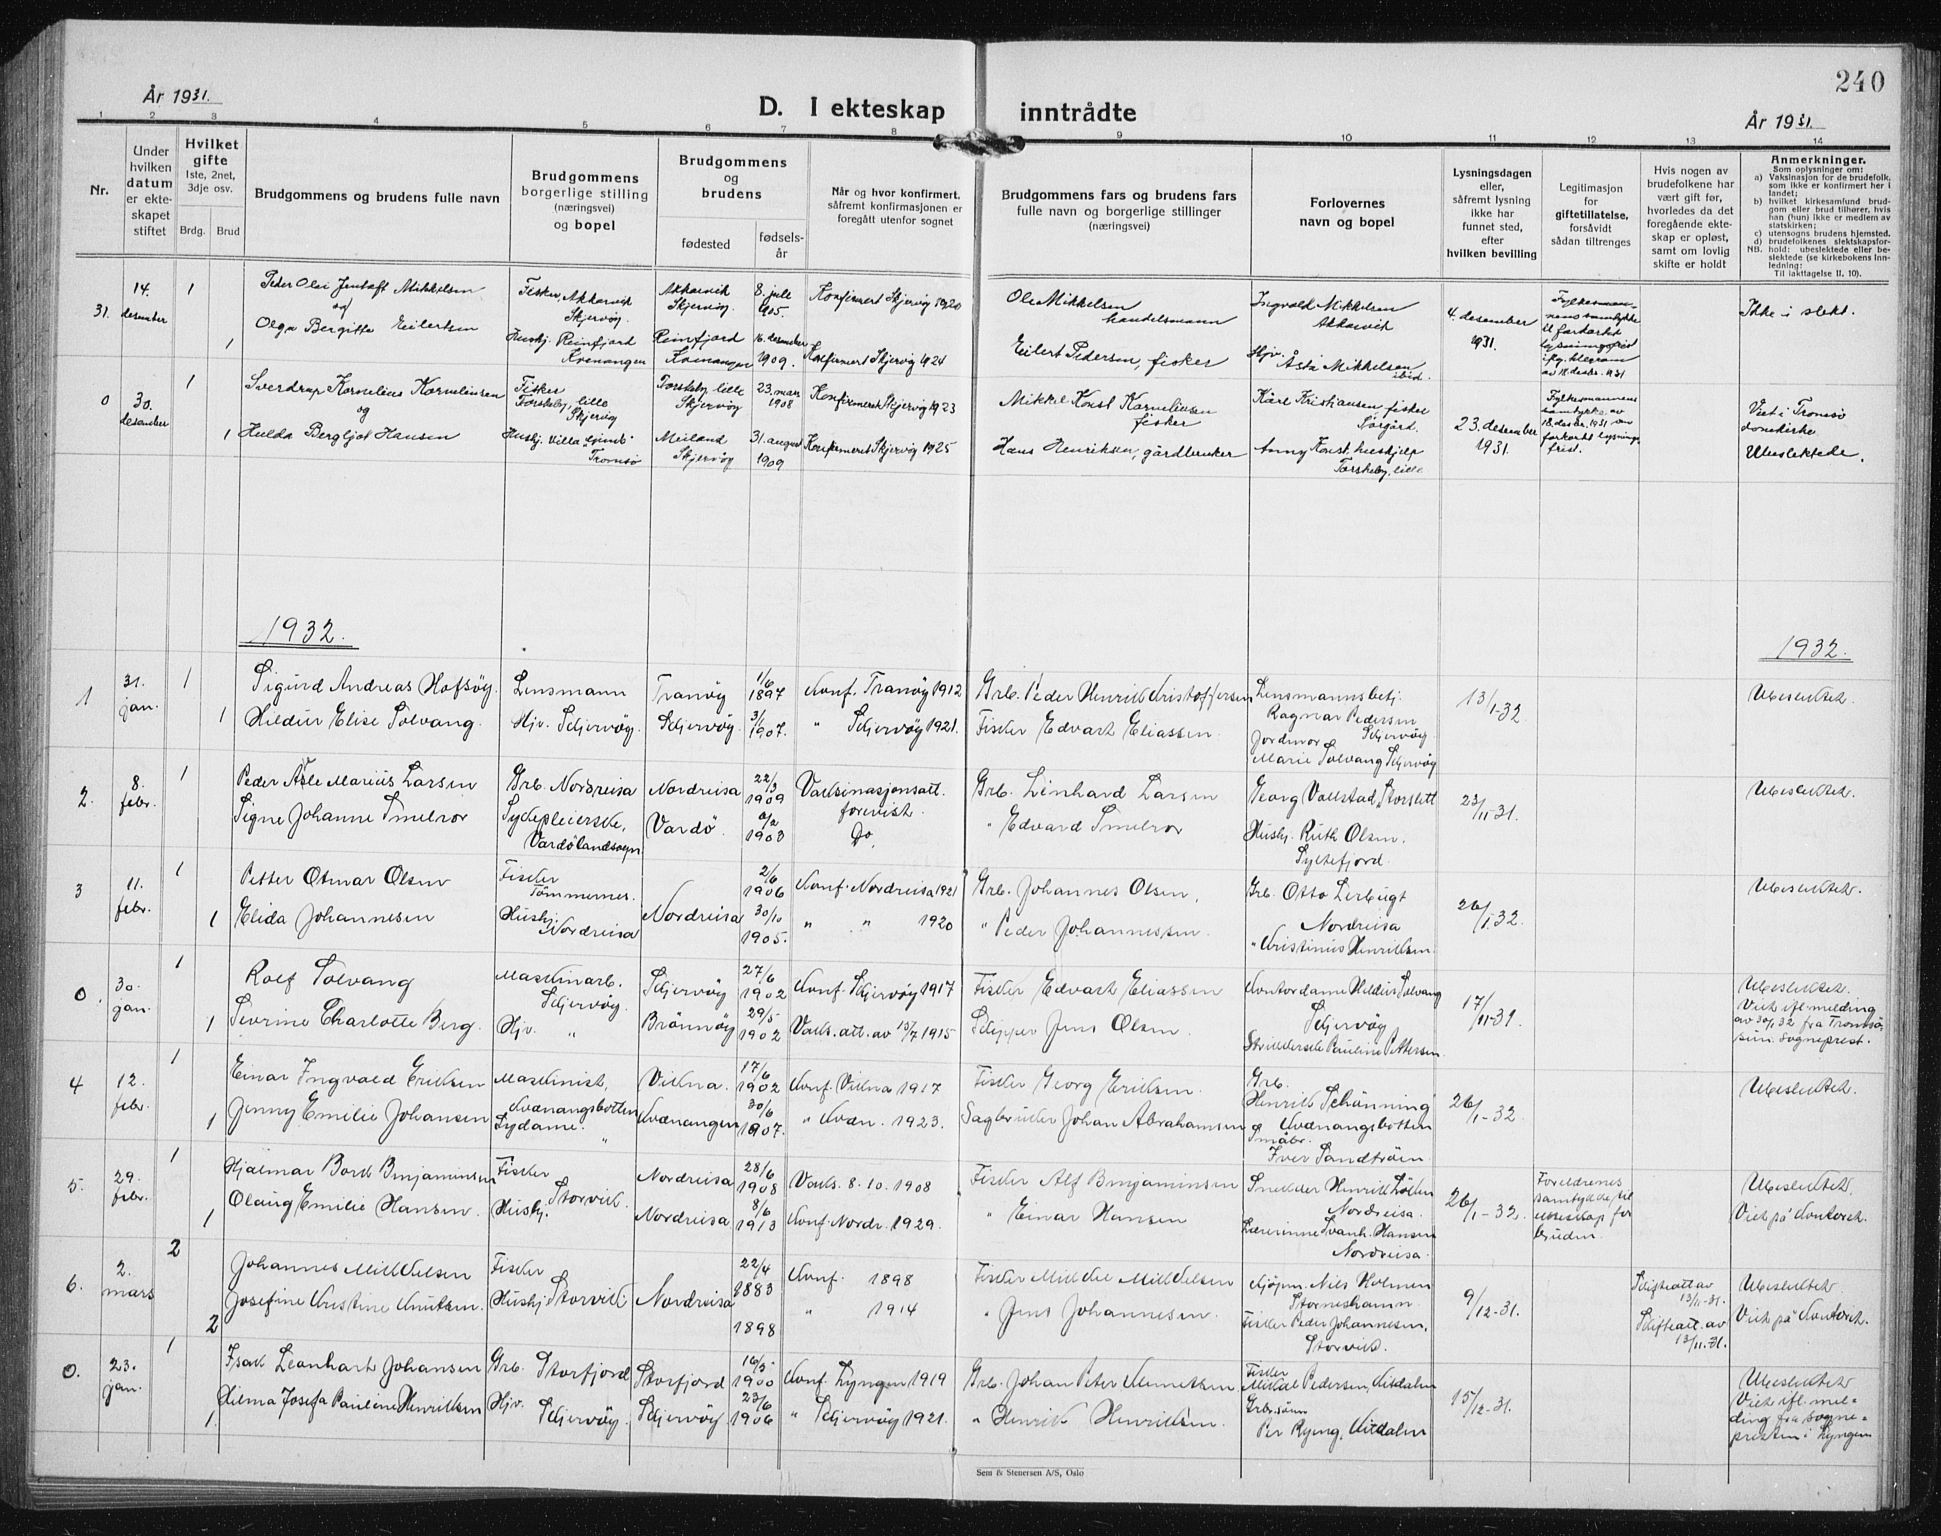 240
År 1931.
D. I ekteskap inntrådte
År 1931.
1 2 3 4 5 6 7 8 9 10 11 12 13 14
Nr.
Under hvilken datum er ekteskapet stiftet
Hvilket gifte 1ste, 2net, 3dje osv.
Brdg. Brud
Brudgommens og brudens fulle navn
Brudgommens borgerlige stilling (næringsvei) og bopel
Brudgommens og brudens
fødested
fødselsår
Når og hvor konfirmert, såfremt konfirmasjonen er foregått utenfor sognet
Brudgommens fars og brudens fars fulle navn og borgerlige stillinger (næringsvei)
Forlovernes navn og bopel
Lysningsdagen eller, såfremt lysning ikke har funnet sted, efter hvilken bevilling
Legitimasjon for giftetillatelse, forsåvidt sådan tiltrenges
Hvis nogen av brudefolkene har vært gift før, hvorledes da det foregående ekteskap er opløst, samt om lovlig skifte er holdt
Anmerkninger.
Som oplysninger om:
a) Vaksinasjon for de brudefolk, som ikke er konfirmert her i landet;
b) hvilket kirkesamfund brudgom eller brud tilhører, hvis han (hun) ikke er medlem av statskirken;
c) utensogns brudens hjemsted.
d) brudefolkenes slektskapsforhold: ubeslektede eller beslektede (se kirkebokens Innledning:
NB.
Til iakttagelse II, 10).
31. 14. desember 1 Peder Olai Jentoft Mikkelsen Fisker, Akkarvik Skjervøy. Akkarvik Skjervøy. 8. jule 1905. Konfirmert Skjervøy 1920 Ole Mikkelsen handelsmann Ingvald Mikkelsen Akkarvik 4. desember 1931. Fylkesmannens samtykke til forkortet lysningsfrist ifg. telegram av 18. desbr. 1931 Ikke i slekt.
og
1 Olga Bergitte Eilertsen Hushj. Reinfjord Kvenangen Reinfjord Kvenangen 16. desember 1909. Konfirmert Skjervøy 1924 Eilert Pedersen, fisker Hjv. Åsta Mikkelsen ibid.
0 30. desember 1 Sverdrup Kornelius Kornelinsen Fisker Torskeby, lille Skjervøy Torskeby, lille Skjervøy 23. mars 1908 Konfirmert Skjervøy 1923 Mikkel Konst Korneliusen fisker Kåre Kristiansen fisker Sørgård. 23. desember 1931. Fylkesmannens samtykke av 18. desbr. 1931 om forkortet lysningsfrist. Viet i Tromsø domkirke Ubeslektede.
og
1 Hulda Bergljot Hansen Hushj. Villa Tromsø Meiland Skjervøy 31. august 1909 Konfirmert Skjervøy 1925 Hans Henriksen, gårdbruker Anny Konst. hushjelp Torskeby, lille
1932. 1932.
1 31. jan. 1 Sigurd Andreas Hofsøy. Lensmann Tranøy 1/6 1897 Konf. Tranøy 1912 Grb. Peder Henrik Kristoffersen Lensmannsbetj. Ragnar Pedersen Skjervøy 13/1-32. Ubeslektet.
1 Hildur Elise Solvang. Hjv. Skjervøy. Skjervøy. 3/1 1907. " Skjervøy 1921. Fisker Edvart Eliassen. Jordmor Marie Solvang Skjervøy
2. 8. febr. 1 Peder Atle Marius Larsen Grb. Nordreisa Nordreisa 22/3 1909 Vaksinasjonsatt. forevist. Grb. Lenhard Larsen Georg Vallstad, Storslett 23/11-31. Ubeslektet.
Signe Johanne Smelror Sykepleierske, Vardø landsogn Vardø. 1903 Do. " Edvard Smelror Hushj. Ruth Olsen. Syltefjord.
3 11. febr. 1 Petter Otmar Olsen Fisker Tømmernes. Nordreisa 2/6 1906 Konf. Nordreisa 1921 Grb. Johannes Olsen. Grb. Otto Lerbugt Nordreisa 26/1-32. Ubeslektet.
1 Elida Johannesen Hushj. Nordreisa 30/10 1905. " " 1920 " Peder Johannessen. " Kristinus Henriksen.
0. 30. jan. 1 Rolf Solvang Maskinarb. Skjervøy. Skjervøy 27/6 1902 Konf. Skjervøy 1917 Fisker Edvart Eliassen Kontordame Hildur Solvang Skjervøy 17/11-31. Ubeslektet. Viet ifl. melding av 30/1 32 fra Tromsøsun. Sogneprest.
1 Severine Charlotte Berg. Hjv. " Brønnøy 29/5 1902 Vaks. att. av 13/7 1915 Skipper Jens Olsen. Skreddersk. Pauline Pettersen.
4 12. febr. 1 Einar Ingvald Eriksen Maskinist, Kvænangsbotten Vikna. 17/6 1902 Konf. Vikna 1917 Fisker Georg Eriksen. Grb. Henrik Schønning Kvænangsbotten 26/1-32. Ubeslektet.
1 Jenny Emilie Johansen Sydame. " Kvænangen 30/6 1907. " Kvæn. 1923. Sagbruker Johan Abrahamsen Småbr. Iver Sandtrøen.
5. 29. febr. 1 Hjalmar Bork Benjaminsen Fisker Storvik. Nordreisa 28/6 1908 Vaks. 8.10.1908 Fisker Alf Benjaminsen Snekker Henrik Nordreisa. 26/1-32. Foreldrenes samtykke til ekteskap for bruden. Ubeslektet. Viet på kontoret.
1 Olaug Emilie Hansen. Hushj. Nordreisa 8/6 1913 Konf. Nordr. 1929. " Einar Hansen Lærerinne Svanh. Hansen Nordreisa.
6. 2. mars 2 Johannes Mikkelsen Fisker Storvik Nordreisa 22/4 1883 Konf. 1898 Fisker Mikkel Mikkelsen Kjøpm. Nils Holmen Storneshamn. 9/12-31. Skifteatt av 13/11-31. Ubeslektet Viet på kontoret.
2 Josefine Kristine Knutsen. Hushj. 1898 " 1914 " Jens Johannesen. Fisker Peder Johannesen, Storvik. Skifteatt. av 13/11-31.
0. 23. jan. 1 Isak Leonhart Johansen Grb. Storfjord Storfjord 16/5 1900 Konf. Lyngen 1919 Grb. Johan Peter Klemetsen Fisker Mikal Pedersen, Kitdalen 15/12-31. Ubeslektet Viet ifl. melding fra sognepresten i Lyngen
1. Hilma Josefa Pauline Henriksen Hjv. Skjervøy. Skjervøy 23/6 1906 " Skjervøy 1921. " Henrik Henriksen. Grbr.sønn Per Ryeng, Kitdalen
Sem & Stenersen A/S, Oslo